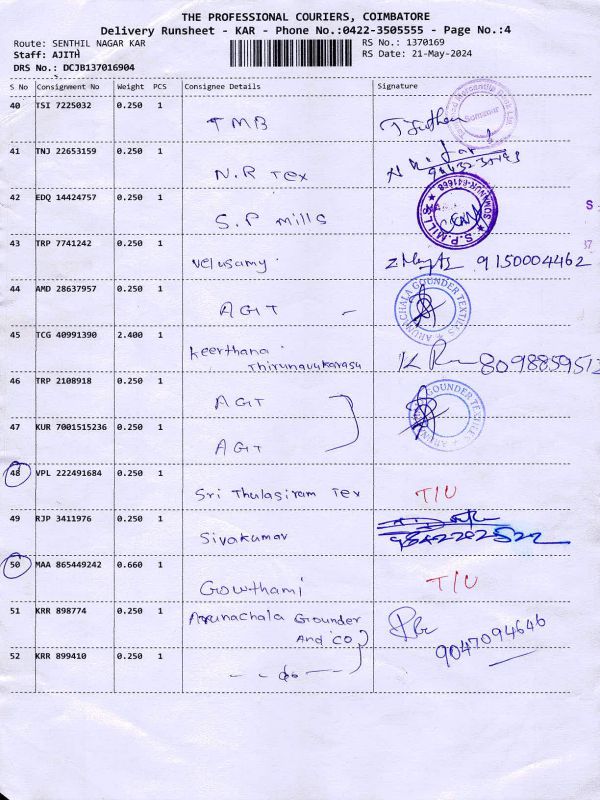 THE PROFESSIONAL COURIERS, COIMBATORE
Delivery Runsheet - KAR - Phone No.:0422-3505555 - Page No.:4
Route: SENTHIL NAGAR KAR
RS No.: 1370169
Staff: AJITH
RS Date: 21-May-2024
DRS No.: DCJB137016904
S No Consignment No Weight PCS Consignee Details Signature
40 TSI 7225032 0.250 1
TMB
41 TNJ 22653159 0.250 1
N.R Tex
42 EDQ 14424757 0.250 1
S.P mills
S.P.MILLS
43 TRP 7741242 0.250 1
Velusamy 9150004462
44 AMD 28637957 0.250 1
AGT
ARUNACHALA GOUNDER TEXTILES
45 TCG 40991390 2.400 1
Keerthana
Thirunavukarasu
46 TRP 2108918 0.250 1
AGT
GOUNDER TEXTILES
47 KUR 7001515236 0.250 1
AGT
48 VPL 222491684 0.250 1
Sri Thulasiram Tex T/U
49 RJP 3411976 0.250 1
Sivakumar
50 MAA 865449242 0.660 1
Gowthami T/U
51 KRR 898774 0.250 1
Arunachala Gounder
And Co
9047094646
52 KRR 899410 0.250 1
- - do - -